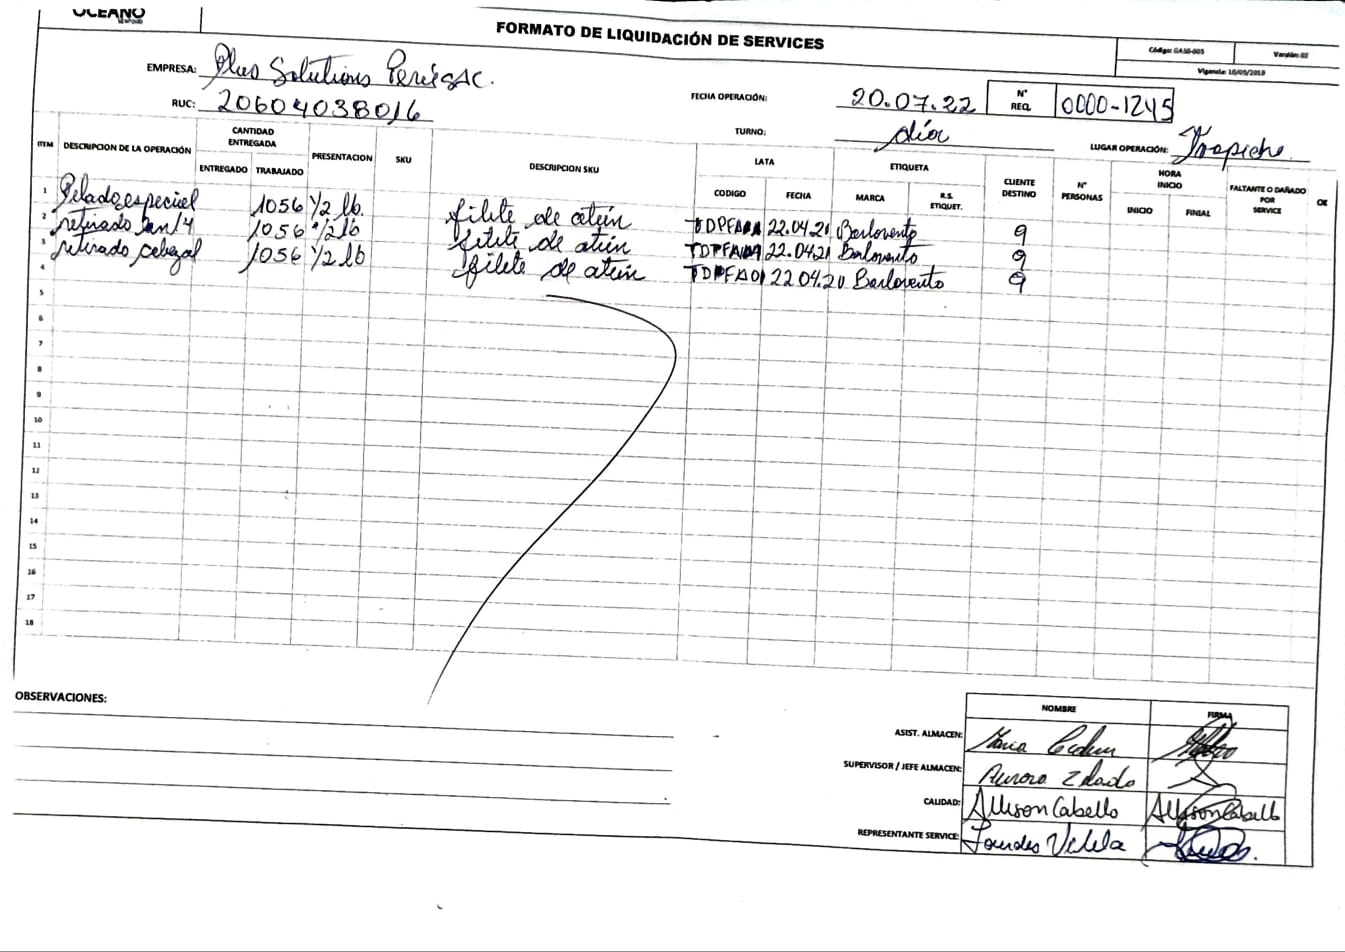 OCEANO
FORMATO DE LIQUIDACIÓN DE SERVICES
Código: GA10-005 Versión: 02
Vigencia: 10/05/2019
EMPRESA: Plus Solutions Perú SAC.
RUC: 20604038016
FECHA OPERACIÓN: 20.07.22
N° REQ. 0000-1245
TURNO: día
LUGAR OPERACIÓN: Trapiche
ITEM DESCRIPCION DE LA OPERACIÓN CANTIDAD ENTREGADA PRESENTACION SKU DESCRIPCION SKU LATA ETIQUETA CLIENTE DESTINO N° PERSONAS HORA INICIO FALTANTE O DAÑADO POR SERVICE OK
ENTREGADO TRABAJADO CODIGO FECHA MARCA R.S. ETIQUET. INICIO FINIAL
1 Pelado especiel 1056 1/2 lb. filete de atún 22.04.21 Barlovento 9
2 retirado 1056 1/2 lb filete de atún 22.04.21 Barlovento 9
3 retirado cabezal 1056 1/2 lb filete de atún TDPFA01 22.04.21 Barlovento 9
4
5
6
7
8
9
10
11
12
13
14
15
16
17
18
OBSERVACIONES:
NOMBRE FIRMA
ASIST. ALMACEN: Maria
SUPERVISOR / JEFE ALMACEN: Aurora
CALIDAD: Allison Cabello Allison Cabello
REPRESENTANTE SERVICE: Lourdes Vilela